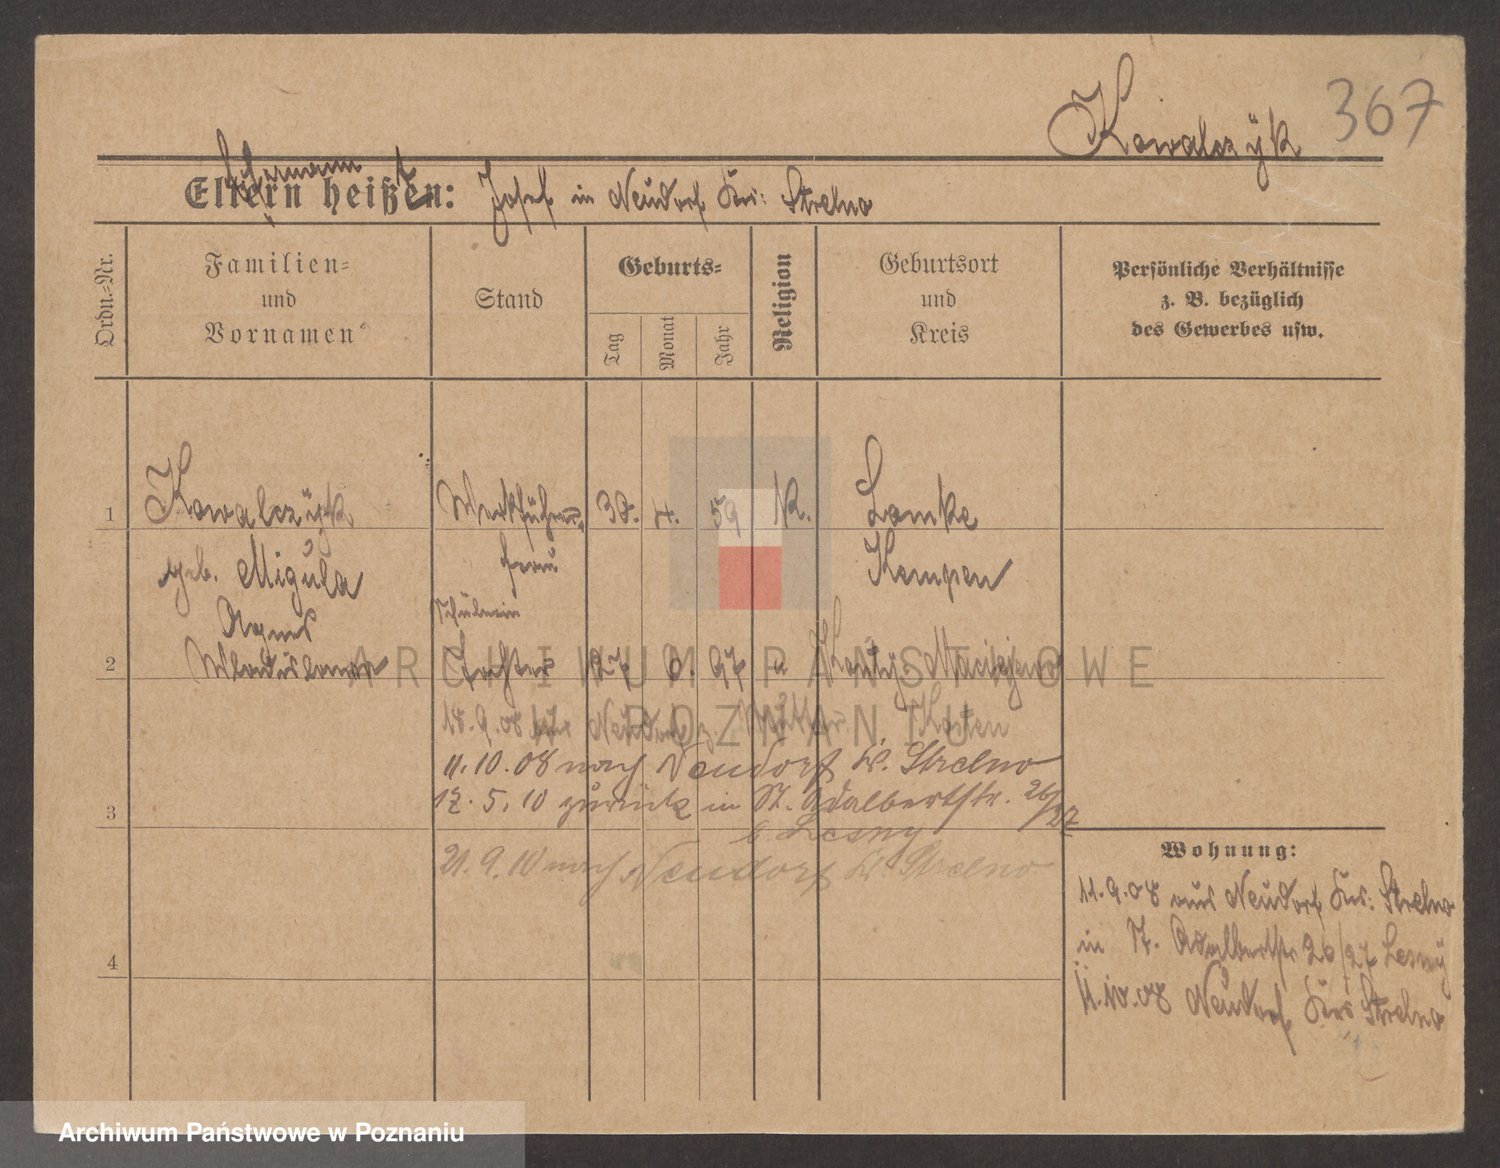 Kowalczÿk 367
Ehemann
Eltern heißen: Josef in Neudorf Krs: Strelno
Ordn.-Nr.
Familien-
und
Vornamen
Stand
Geburts-
Tag
Monat
Jahr
Religion
Geburtsort
und
Kreis
Persönliche Verhältnisse
z. B. bezüglich
des Gewerbes usw.
1 Kowalczÿk Werkführer 30. 4. 59 K. Lomke
geb. Migula frau Kempen
Agnes Schülerin
2 Wladislawa Tochter 27 6. 97 "
18.9.08 Neudorf z. Mutter. Kosten
11.10.08 nach Neudorf Kr. Strelno
3 12.5.10 zurück in St. Adalbertstr. 26/27
b. Lesny
21.9.10 nach Neudorf Kr. Strelno
4
Wohnung:
11.9.08 aus Neudorf Krs: Strelno
in St. Adalbertstr 26/27 Lesny
11.10.08 Neudorf Krs Strelno
ARCHIWUM PAŃSTWOWE
W POZNANIU
Archiwum Państwowe w Poznaniu